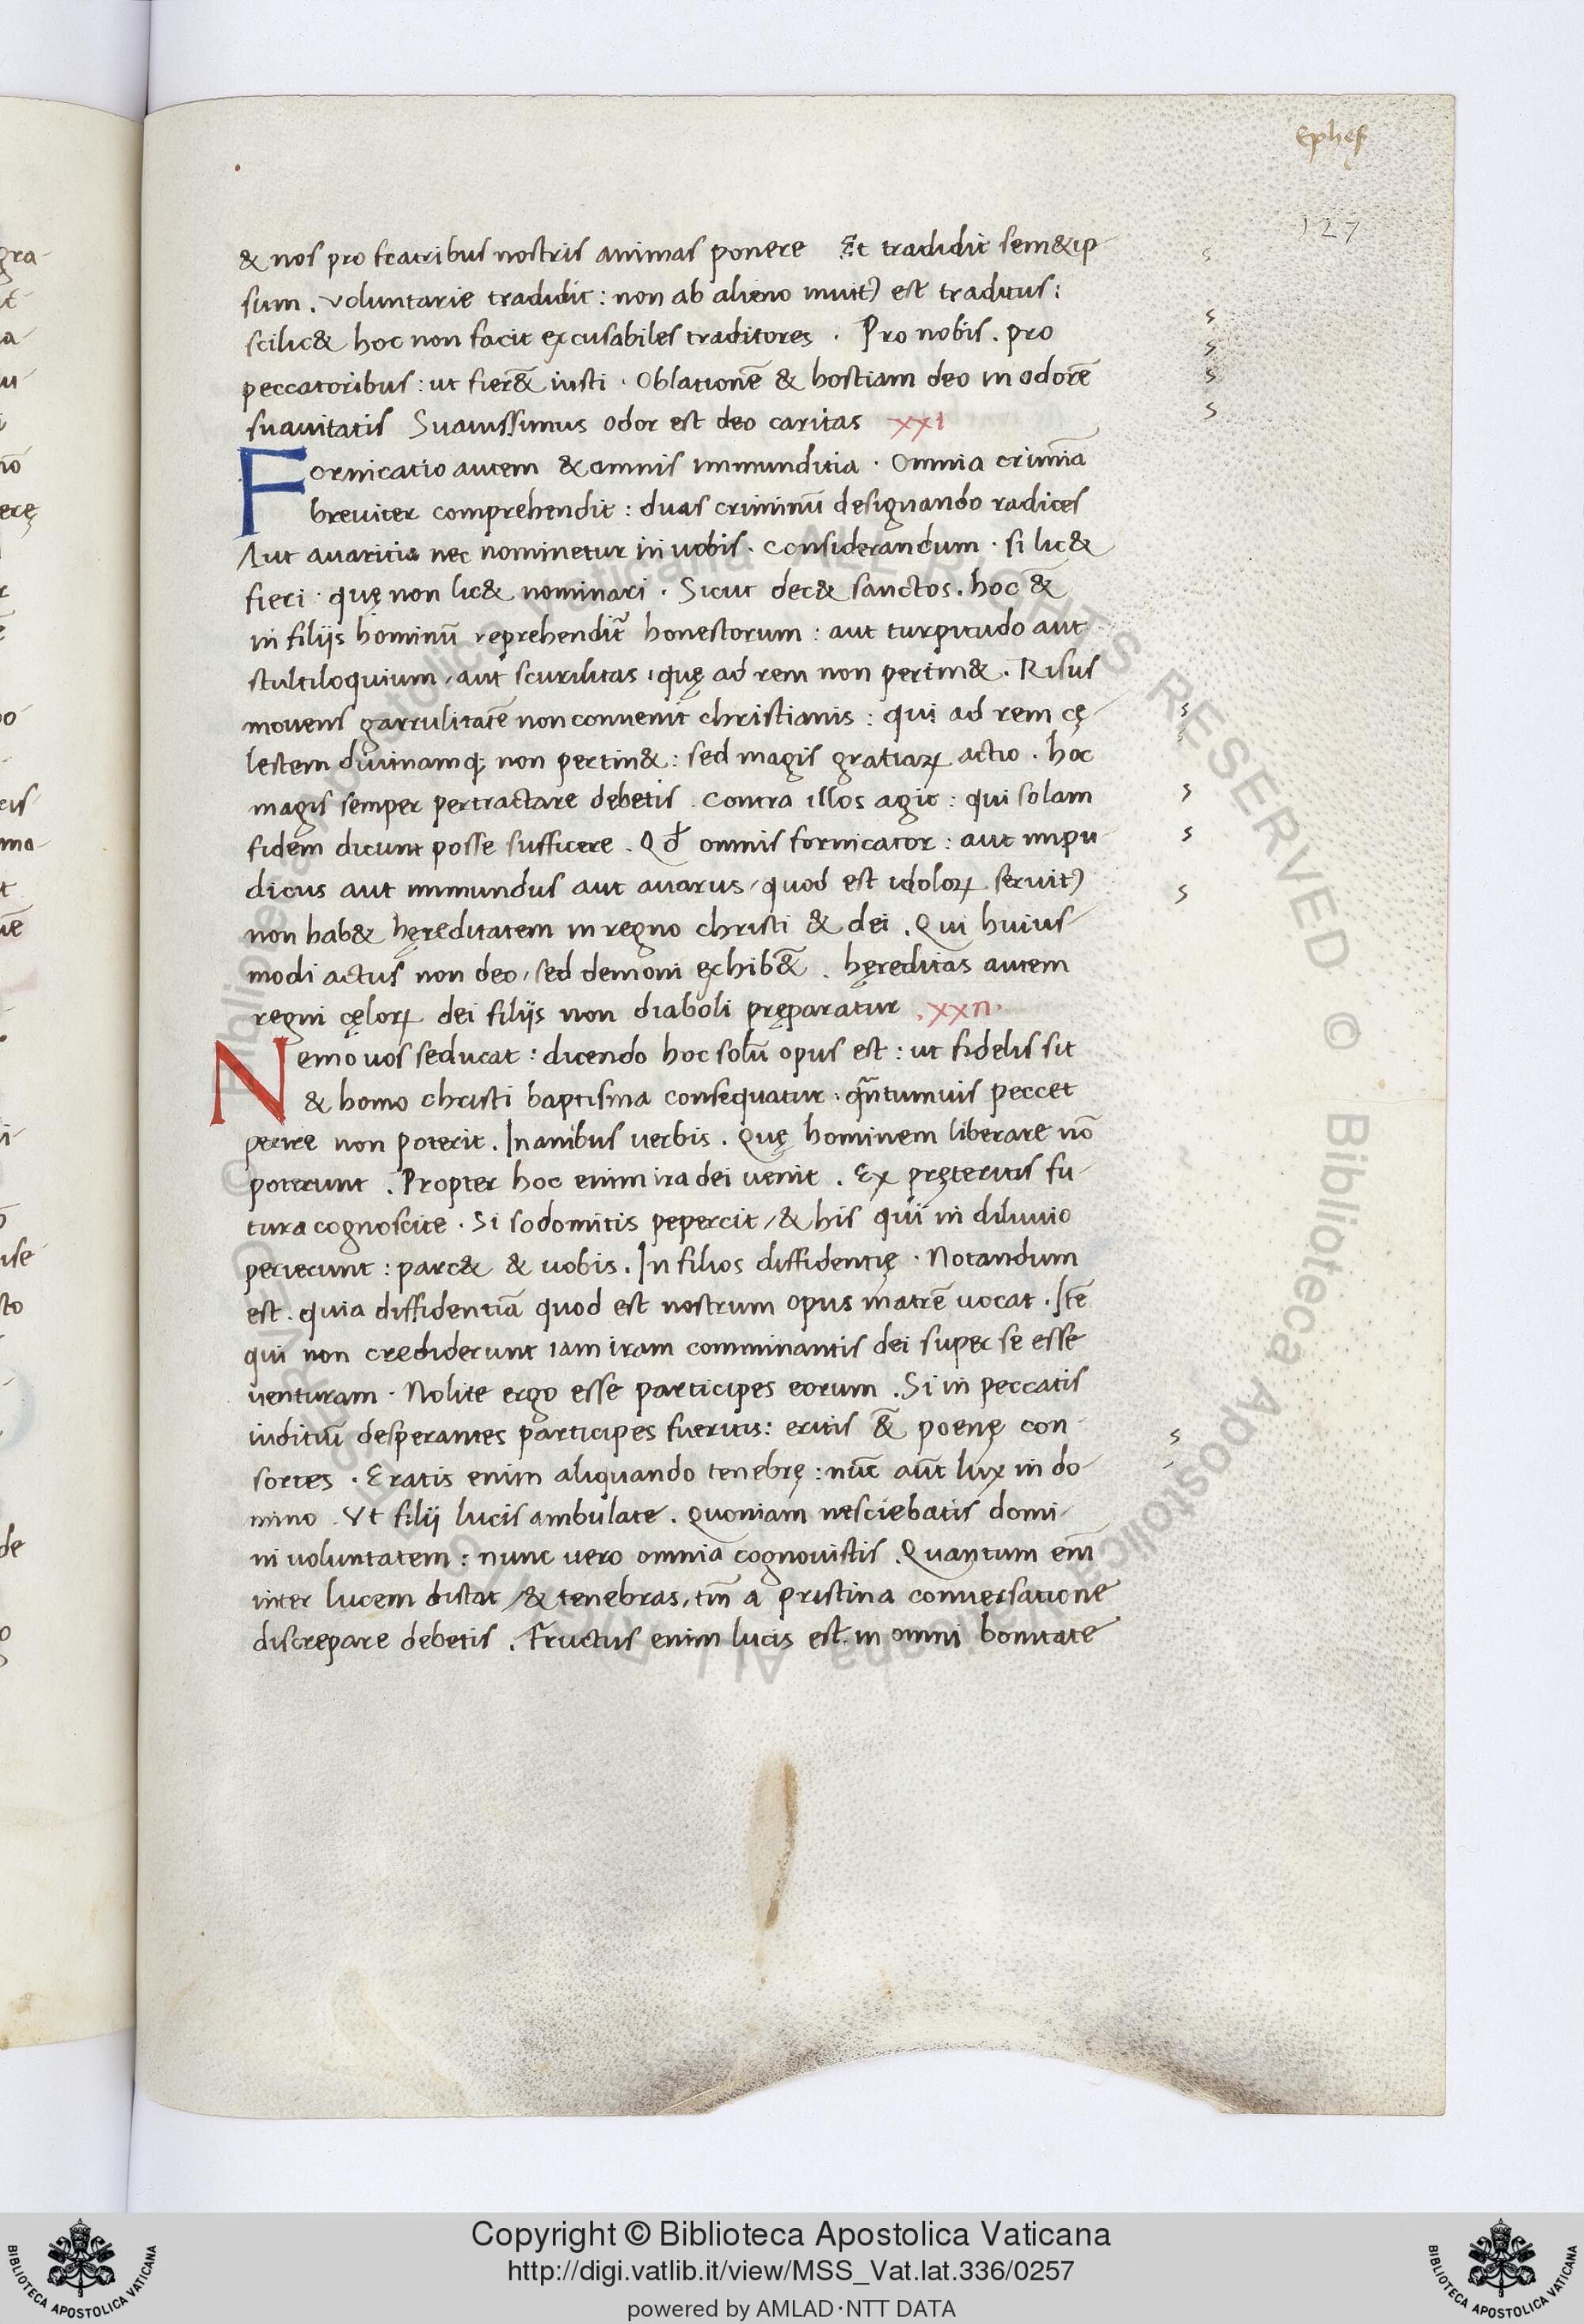 Ephes
127
& nos pro fratribus nostris animas ponere Et tradidit sem&ip-
sum . voluntarie tradidit : non ab alieno inuit9 est traditus :
scilic& hoc non facit excusabiles traditores . Pro nobis . pro
peccatoribus : ut fier&̄ iusti . Oblationē & hostiam deo in odorē
suauitatis Suauissimus odor est deo caritas xxi
Fornicatio autem & omnis immunditia . Omnia crimīa
breviter comprehendit : duas criminū designando radices
Aut auaritia nec nominetur in uobis . Considerandum . si lic&
fieri . quę non lic& nominari . Sicut dec& sanctos . hoc &̄
in filijs hominū reprehendit̃ honestorum : aut turpitudo aut
stultiloquium , aut scurilitas , quę ad rem non pertin& . Risus
mouens garrulitatē non convenit christianis : qui ad rem cę-
lestem divinamq; non pertin& : sed magis gratiaꝝ actio . hoc
magis semper pertractare debetis . Contra illos agit : qui solam
fidem dicunt posse sufficere . Qđ omnis fornicator : aut impu-
dicus aut immundus aut auarus , quod est idoloꝝ seruit9
non hab& hęreditatem in regno christi & dei . Qui huius-
modi actus non deo , sed demoni exhib&̄ . hęreditas autem
regni cęloꝝ dei filijs non diaboli pręparatur . xxii .
Nemo uos seducat : dicendo hoc solū opus est : ut fidelis sit
& homo christi baptisma consequatur . qñtumuis peccet
perire non poterit . Inanibus uerbis . Quę hominem liberare nō
poterunt . Propter hoc enim ira dei uenit . Ex pręteritis fu-
tura cognoscite . Si sodomitis pepercit , & his qui in diluuio
perierunt : parc& & uobis . In filios diffidentię . Notandum
est . quia diffidentiā quod est nostrum opus matrē uocat . Itē
qui non crediderunt iam iram comminantis dei super se esse
uenturam . Nolite ergo esse participes eorum . Si in peccatis
iuditiū desperantes participes fueritis : eritis &̄ poenę con-
sortes . Eratis enim aliquando tenebrę : nūc aūt lux in do-
mino . Vt filij lucis ambulate . Quoniam nesciebatis domi-
ni voluntatem : nunc vero omnia cognouistis . Quantum em̄
inter lucem distat , & tenebras , tm̄ a pristina conuersatione
discrepare debetis . Fructus enim lucis est . in omni bonitate
Copyright © Biblioteca Apostolica Vaticana
http://digi.vatlib.it/view/MSS_Vat.lat.336/0257
powered by AMLAD·NTT DATA